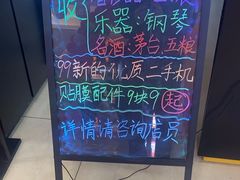 收
乐器:钢琴
名酒:茅台.五粮
99新的优质二手机
贴膜配件9块9起
详情请咨询店员